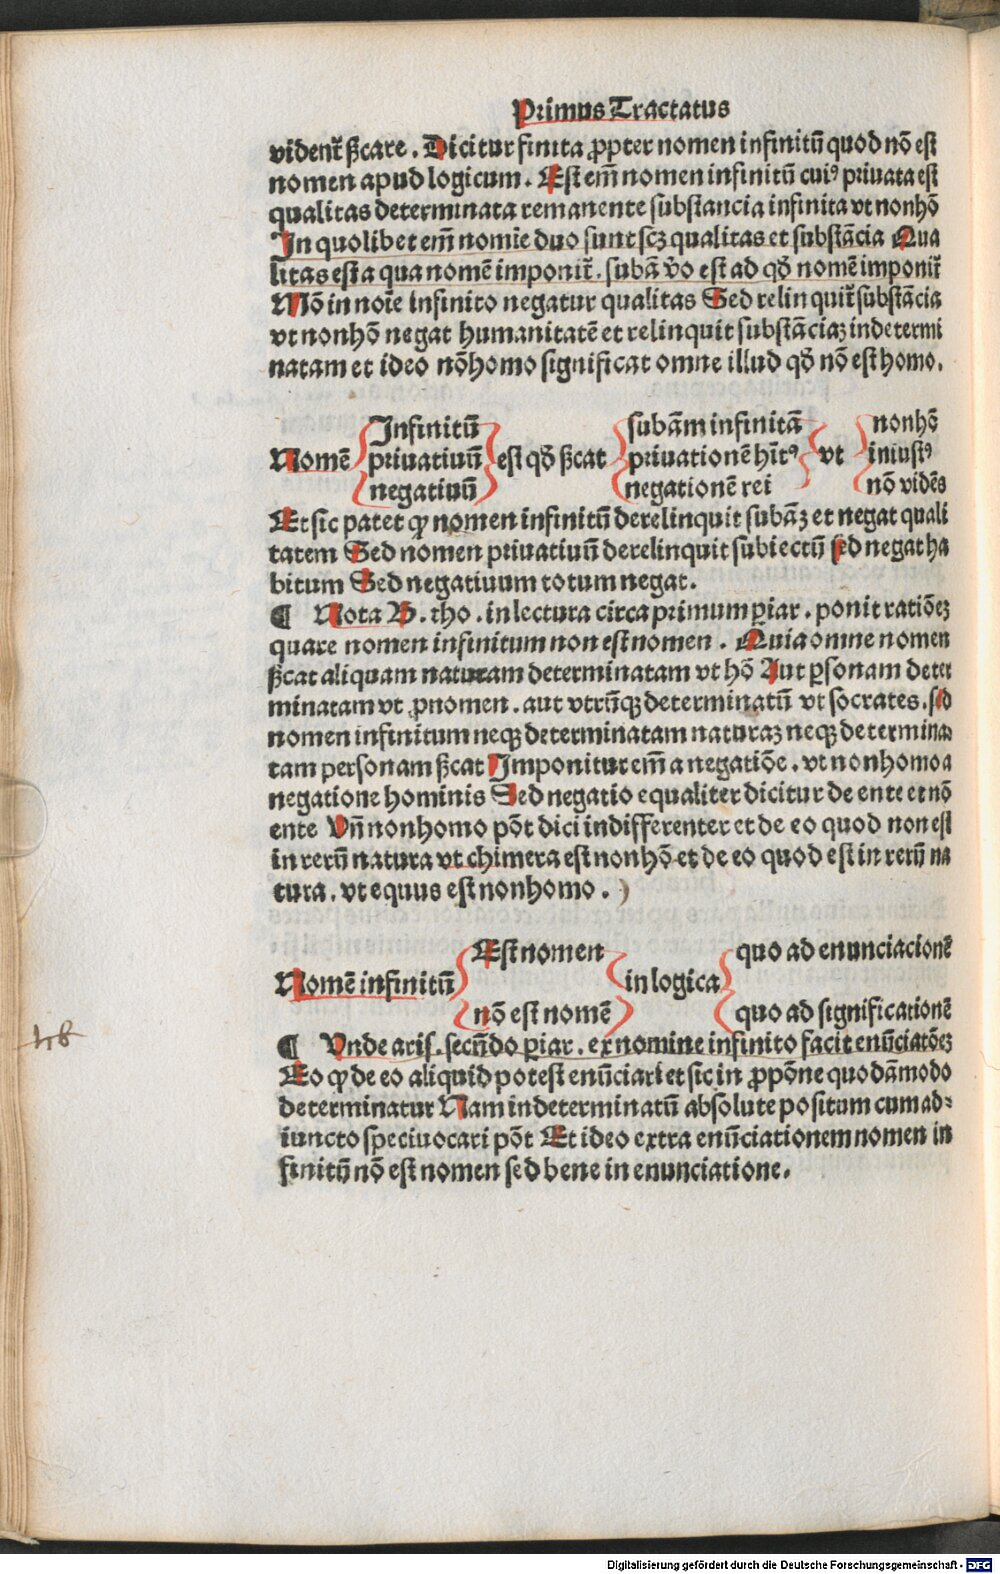 Primus Tractatus
vident᷑ ßcare. Dicitur finita ꝓpter nomen infinitū quod nō est
nomen apud logicum. Est em̄ nomen infinitū cuiꝰ priuata est
qualitas determinata remanente substancia infinita vt nonhō
In quolibet em̄ nomīe duo sunt scꝫ qualitas et substācia Qua
litas est a qua nomē imponit᷑. subā v̄o est ad qḋ nomē imponit᷑
Mō in noīe infinito negatur qualitas Sed relinquit᷑ substācia
vt nonhō negat humanitatē et relinquit substāciaꝫ indetermi
natam et ideo nōhomo significat omne illud qḋ nō est homo.
Nomē
Infinitū
priuatiuū
negatiuū
est qḋ ßcat
subām infinitā
priuationē hn̄tꝰ
negationē rei
vt
nonhō
iniustꝰ
nō vidēs
Et sic patet ꝙ nomen infinitū derelinquit subāꝫ et negat quali
tatem Sed nomen priuatiuū derelinquit subiectū sed negat ha
bitum Sed negatiuum totum negat.
¶ Nota B. tho. in lectura circa primum ꝑiar. ponit ratiōeꝫ
quare nomen infinitum non est nomen. Quia omne nomen
ßcat aliquam naturam determinatam vt hō Aut ꝑsonam deter
minatam vt ꝓnomen. aut vtrūqꝫ determinatū vt socrates. sꝫ
nomen infinitum neqꝫ determinatam naturaꝫ neqꝫ determina
tam personam ßcat Imponitur em̄ a negatiōe. vt nonhomo a
negatione hominis Sed negatio equaliter dicitur de ente et nō
ente Vn̄ nonhomo pōt dici indifferenter et de eo quod non est
in rerū natura vt chimera est nonhō et de eo quod est in rerū na
tura. vt equus est nonhomo. )
Nomē infinitū
Est nomen
nō est nomē
in logica
quo ad enunciacionē
quo ad significationē
¶ Vnde aris. secūdo ꝑiar. ex nomine infinito facit enūciatōeꝫ
Eo ꝙ de eo aliquid potest enūciari et sic in ꝓpōne quodāmodo
determinatur Nam indeterminatū absolute positum cum ad⸗
iuncto speciuocari pōt Et ideo extra enūciationem nomen in
finitū nō est nomen sed bene in enunciatione.
Digitalisierung gefördert durch die Deutsche Forschungsgemeinschaft - DFG